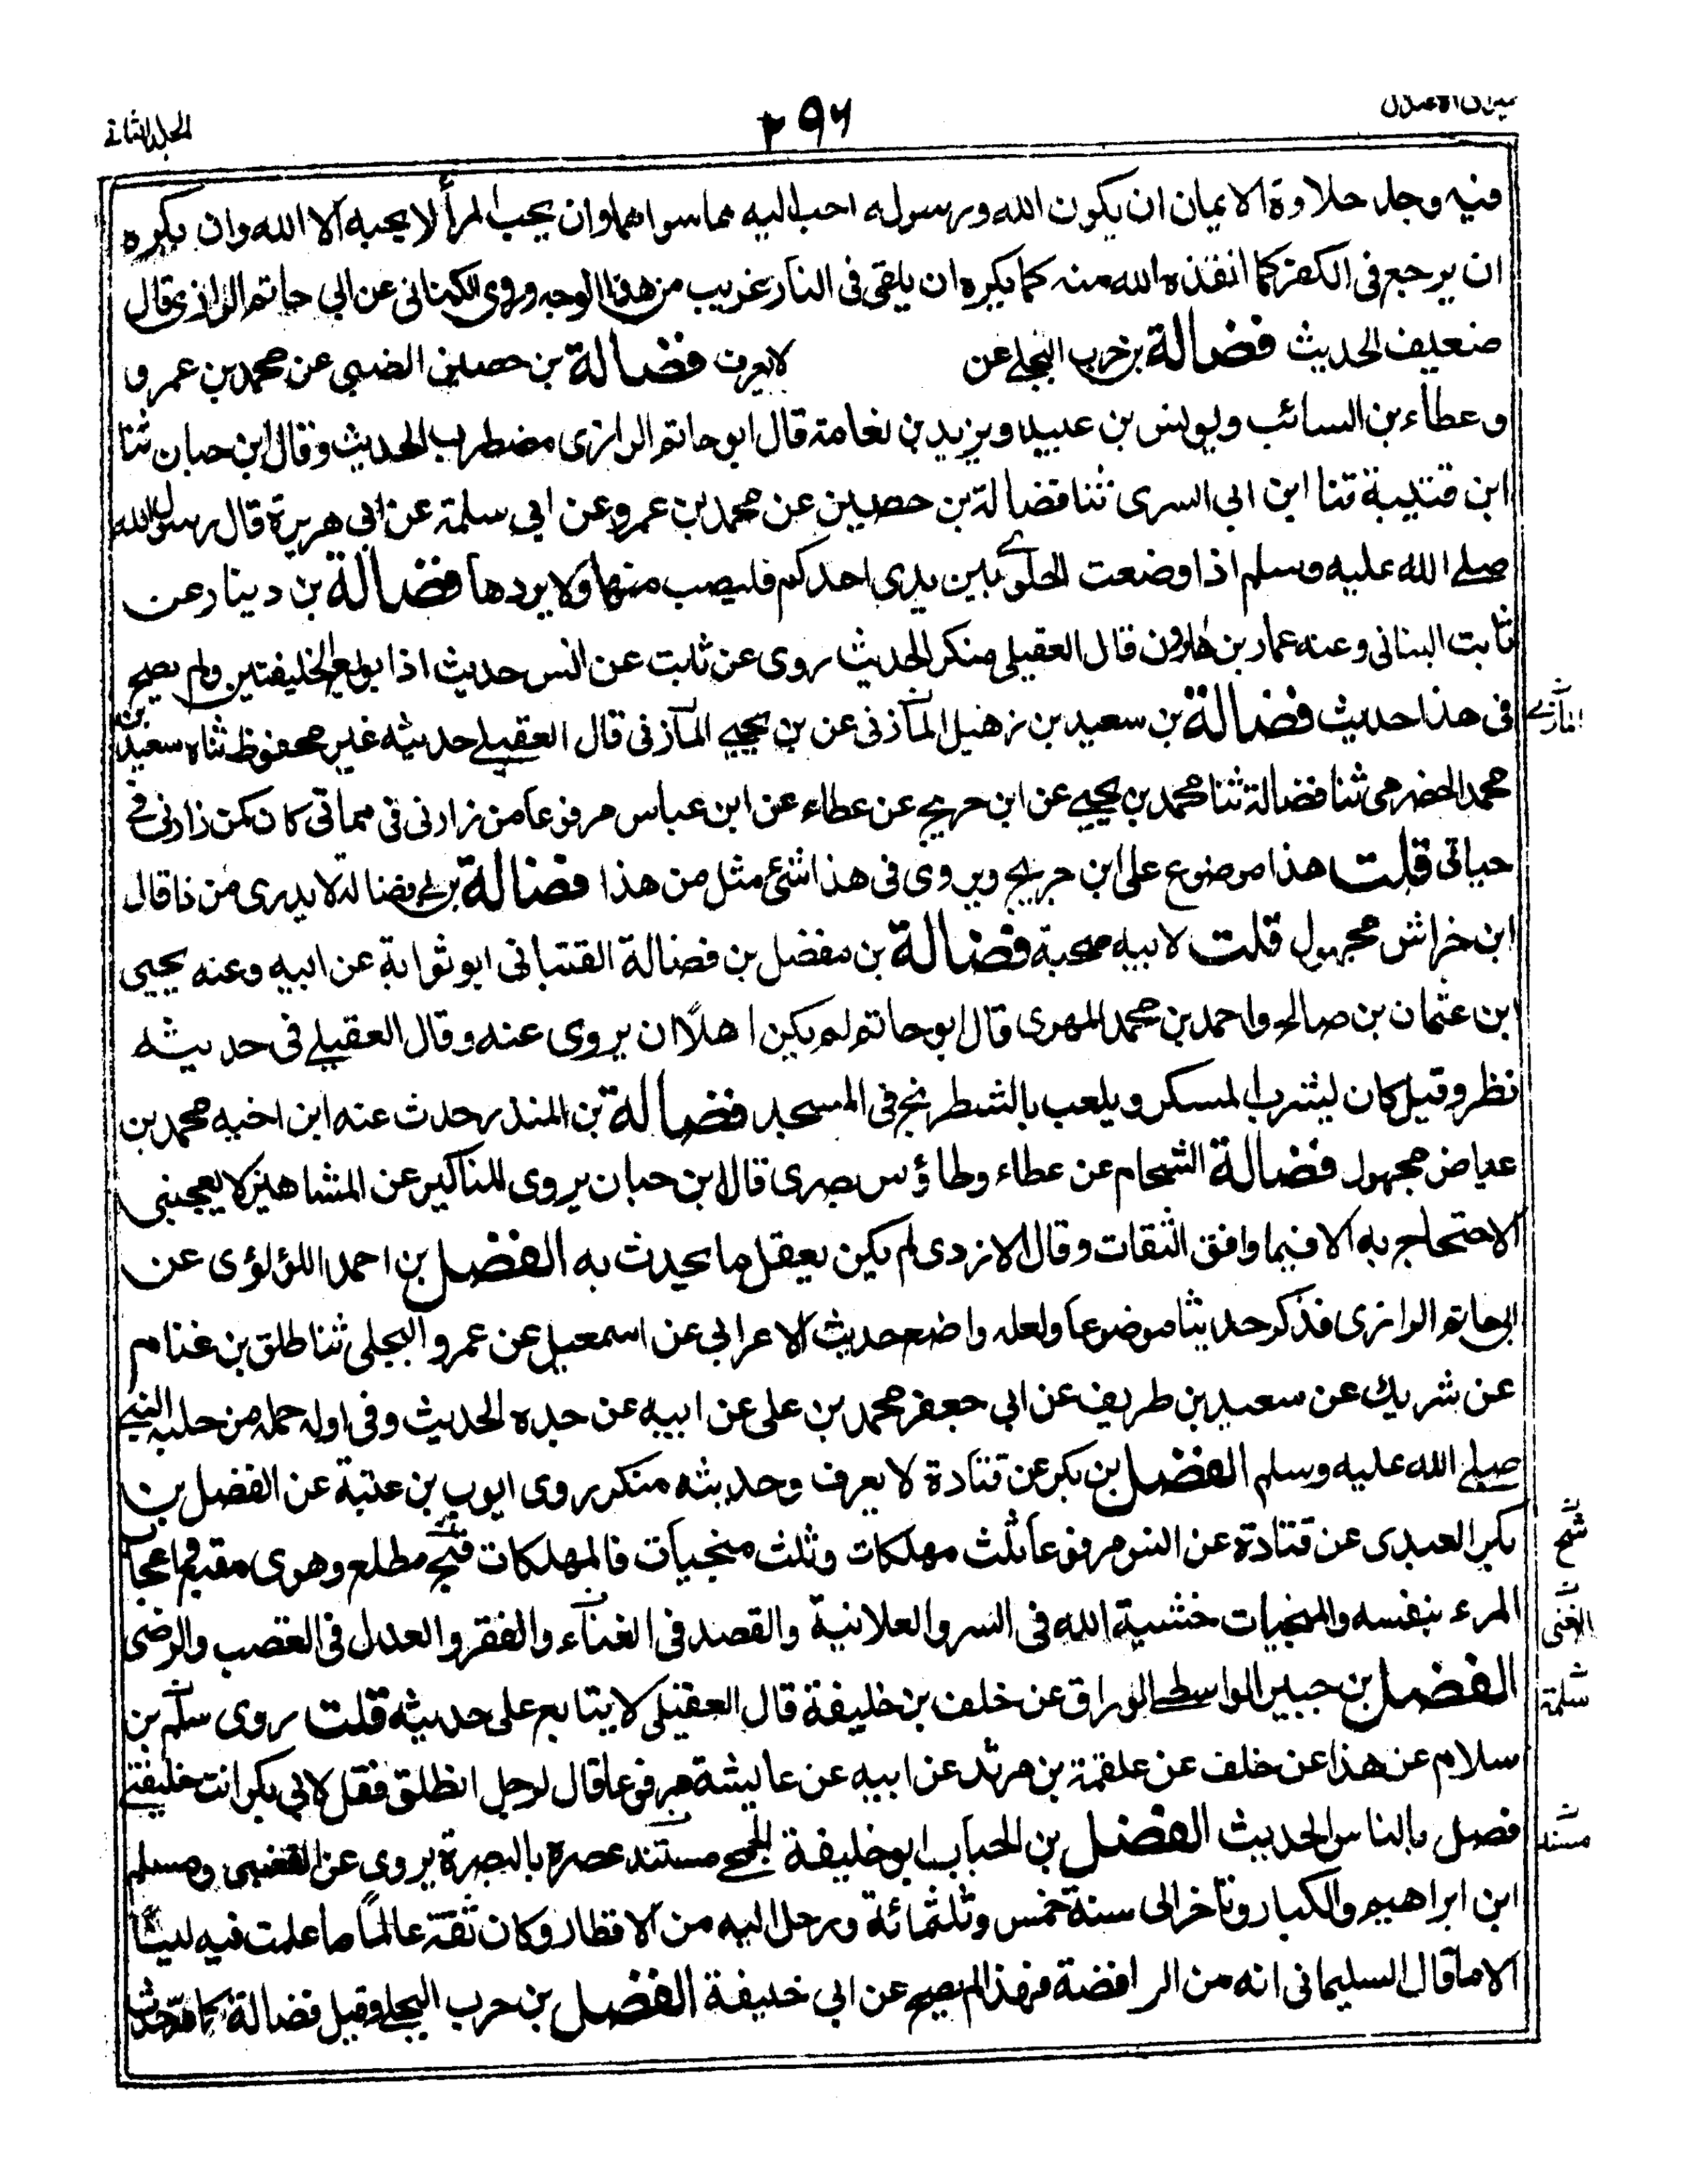 ميزان الاعتدال
٢٩٦
الجلد الثانى
فيه وجد حلاوة الايمان ان يكون الله ورسوله احب اليه مما سواهما وان يحب المرأ لا يحبه الا الله وان يكره
ان يرجع فى الكفر كما انقذه الله منه كما يكره ان يلقى فى النار غريب من هذا الوجه وروى الكنانى عن ابى حاتم الرازى قال
ضعيف الحديث فضالة بن حرب البجلے عن لا يعرف فضالة بن حصين الضبى عن محمد بن عمرو
وعطاء بن السائب ويونس بن عبيد ويزيد بن نعامة قال ابو حاتم الرازى مضطرب الحديث وقال ابن حبان ثنا
ابن قتيبة ثنا ابن ابى السرى ثنا فضالة بن حصين عن محمد بن عمرو عن ابى سلمة عن ابى هريرة قال رسول الله
صلے الله عليه وسلم اذا وضعت الحلوے بين يدى احدكم فليصب منها ولا يردها فضالة بن دينار عن
ثابت البنانى وعنه عمار بن هارون قال العقيلى منكر الحديث روى عن ثابت عن انس حديث اذا بويع لخليفتين ولم يصح
فى هذا حديث فضالة بن سعيد بن زهيل المآزنى عن بن يحيے المآزنى قال العقيلے حديثه غير محفوظ ثناه سعيد بن
المآربے
محمد الحضرمى ثنا فضالة ثنا محمد بن يحيے عن ابن جريج عن عطاء عن ابن عباس مرفوعا من زارنى فى مماتى كان كمن زارنى فے
حياتى قلت هذا موضوع على ابن جريج ويروى فى هذا شئ مثل من هذا فضالة بن ابے فضالة لا يدرى من ذا قال
ابن خراش مجهول قلت لابيه صحبة فضالة بن مفضل بن فضالة القتبانى ابو ثوابة عن ابيه وعنه يحيى
ابن عثمان بن صالح واحمد بن محمد المهرى قال ابو حاتم لم يكن اهلًا ان يروى عنه وقال العقيلے فى حديثه
نظر وقيل كان يشرب المسكر ويلعب بالشطرنج فى المسجد فضالة بن المنذر حدث عنه ابن اخيه محمد بن
عياض مجهول فضالة الشحام عن عطاء وطاؤس بصرى قال ابن حبان يروى المناكير عن المشاهير لا يعجبنى
الاحتجاج به الا فيما وافق الثقات وقال الازدى لم يكن يعقل ما يحدث به الفضل بن احمد اللؤلؤى عن
ابى حاتم الرازى فذكر حديثا موضوعا ولعله واضعه حديث الاعرابى عن اسمعيل عن عمرو البجلى ثنا طلق بن غنام
عن شريك عن سعيد بن طريف عن ابى جعفر محمد بن على عن ابيه عن جده الحديث وفى اوله حمله من حلبه النبے
صلے الله عليه وسلم الفضل بن بكر عن قتادة لا يعرف وحديثه منكر روى ايوب بن عتبة عن الفضل بن
بكر العبدى عن قتادة عن انس مرفوعا ثلث مهلكات وثلث منجيات فالمهلكات مطلع وهوى متبع واعجاب
شح
المرء بنفسه والمنجيات خشية الله فى السر والعلانية والقصد فى الغناء والفقر والعدل فى الغضب والرضى
الغنى
الفضل بن جبير الواسطے الوراق عن خلف بن خليفة قال العقيلى لا يتابع على حديثه قلت روى سلم بن
سلمة
سلام عن هذا عن خلف عن علقمة بن مرثد عن ابيه عن عايشة مرفوعا قال لرجل انطلق فقل لابى بكر انت خليفتے
فصل بالناس الحديث الفضل بن الحباب ابو خليفة الجمحے مستند عصره بالبصرة يروى عن القعنبى ومسلم
مسند
ابن ابراهيم والكبار وتاخر الى سنة خمس وثلثمائة ورحل اليه من الاقطار وكان ثقة عالمًا ما علمت فيه لينًا
الا ما قال السليمانى انه من الرافضة فهذا لم يصح عن ابى خليفة الفضل بن حرب البجلے وقيل فضالة كما مر حدثنا